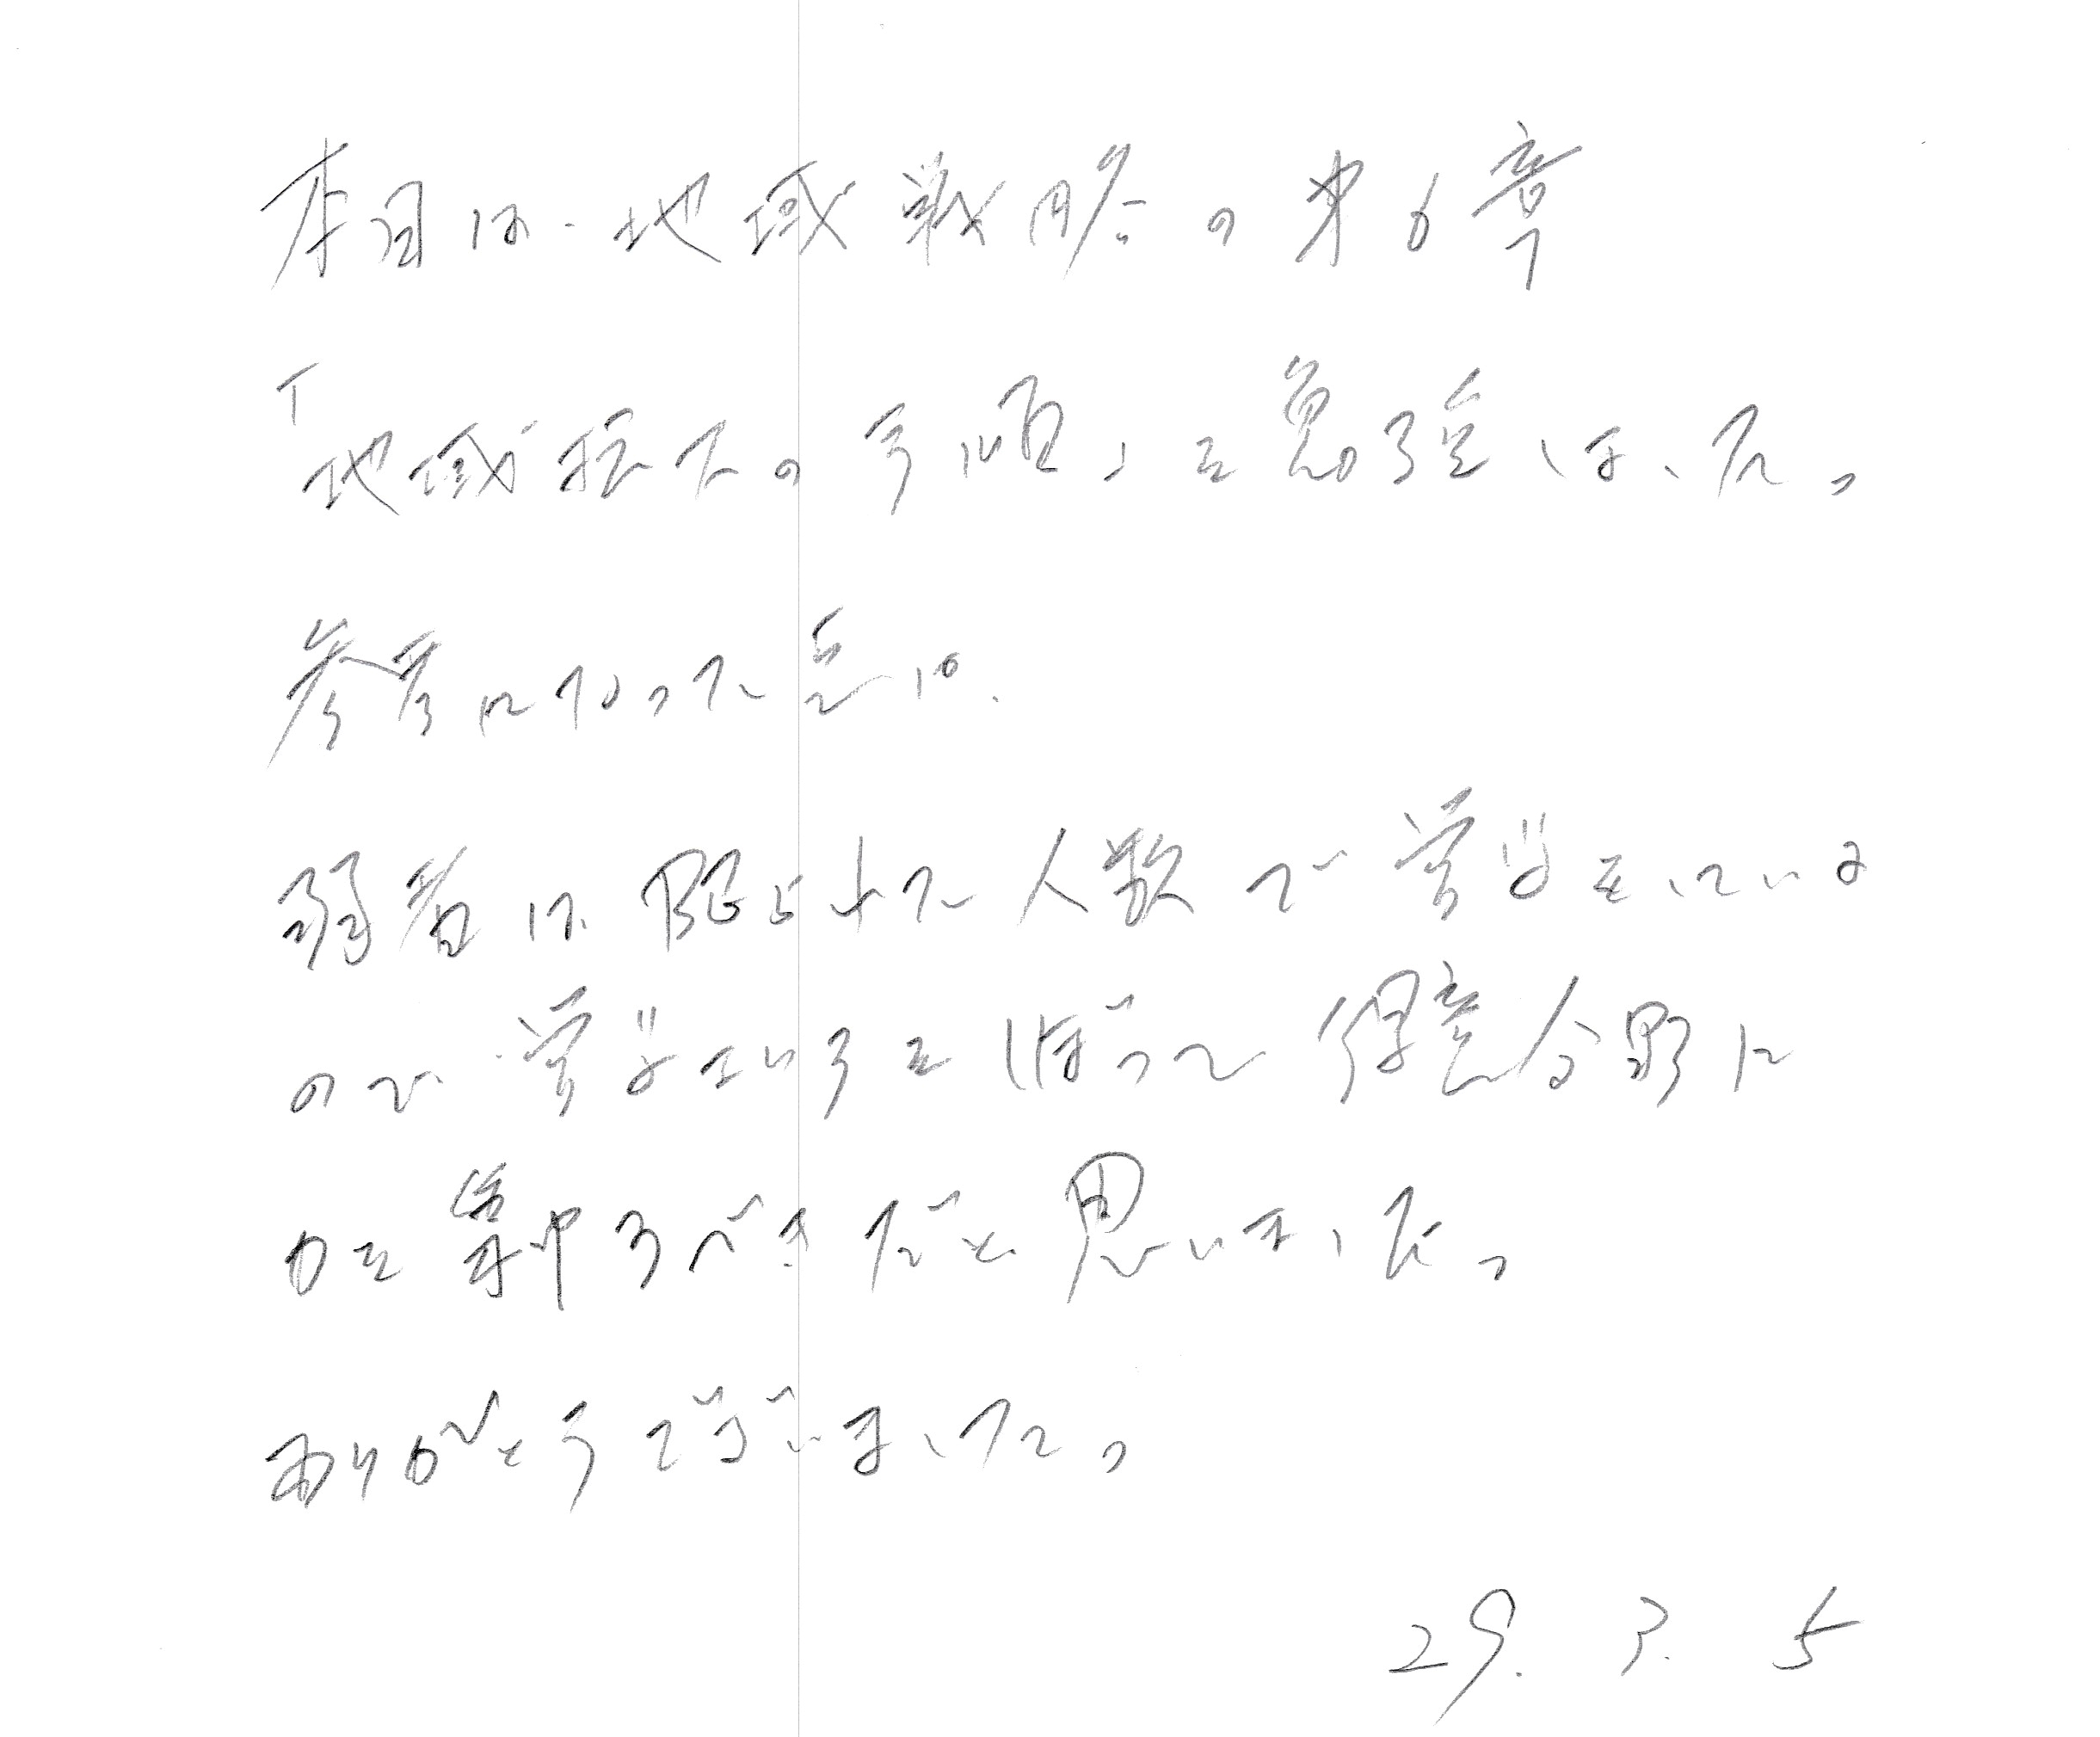 本日は、地域戦略の第6章
「地域拡大の手順」を勉強しました。
参考になった点は、
弱者は限られた人数で営業をしている
ので、営業エリアをしぼって得意分野に
力を集中するべきだと思いました。
ありがとうございました。
29. 3. 5